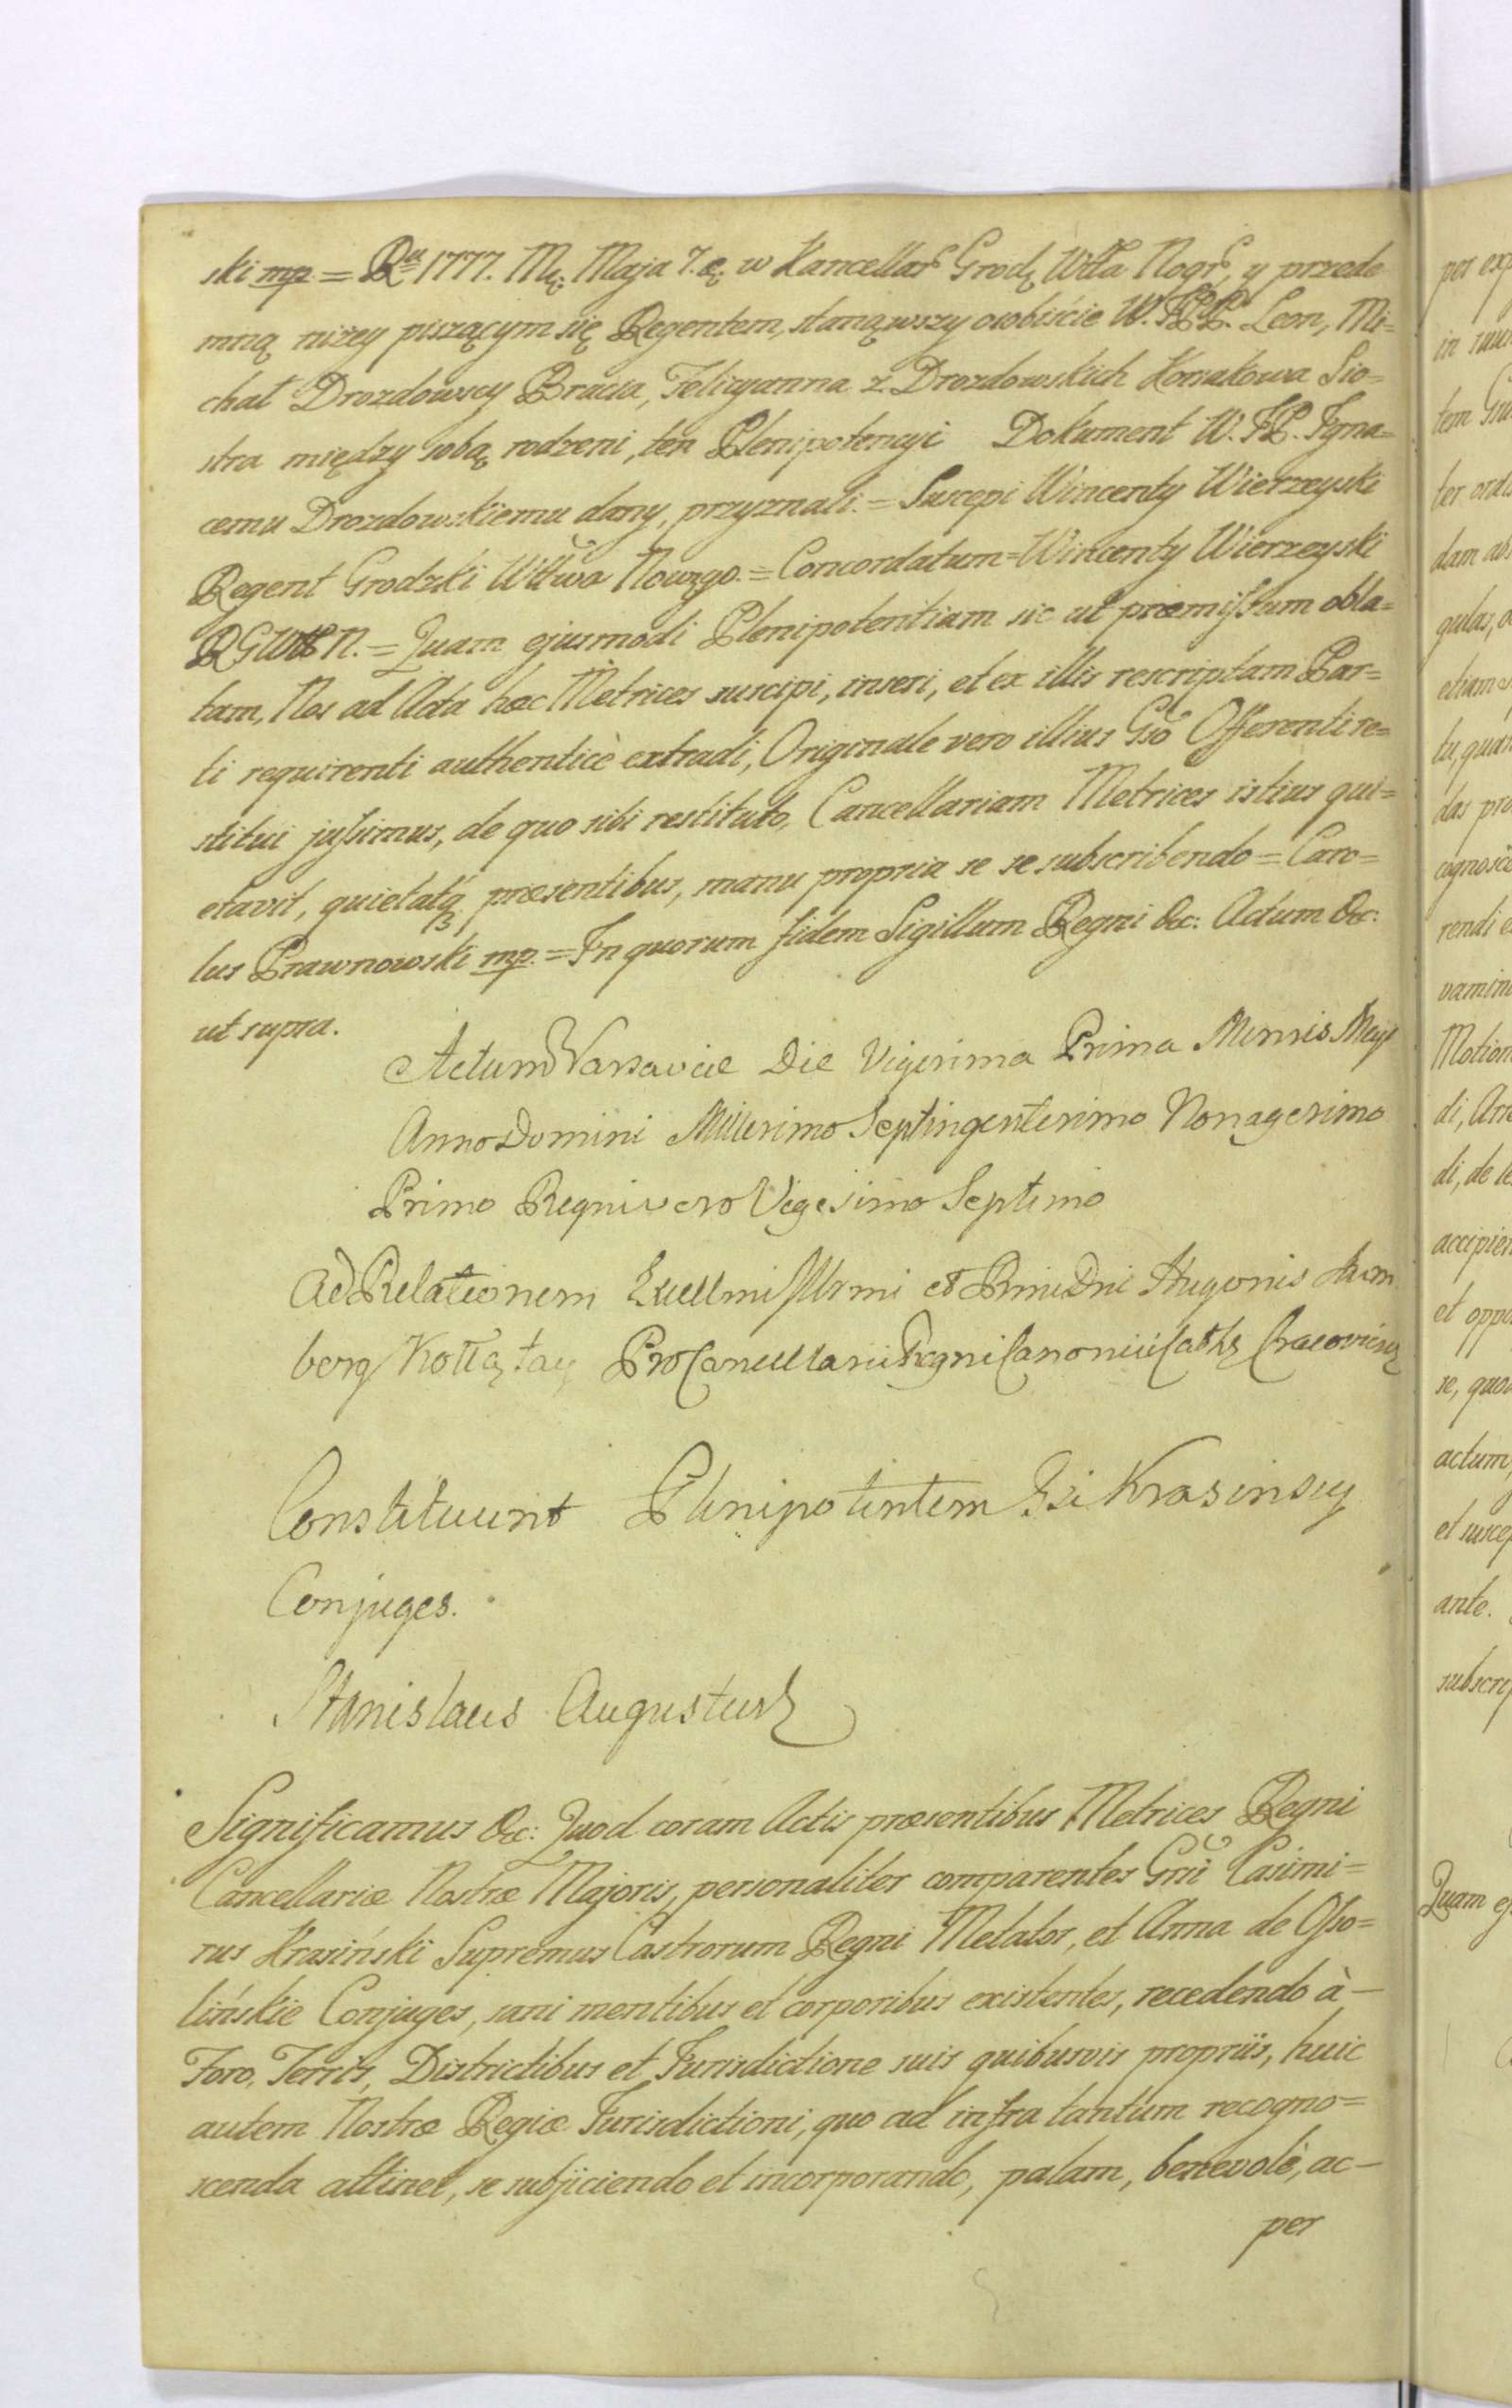 ski mp. = Ru 1777. Mę. Maja 7. ę. w Kancellar. Grodz. Wtła Nogr. y przede
mną niżey piszącym się Regentem, stanąwszy osobiście W. JPP. Leon, Mi=
chał Drozdowscy Bracia, Felicyanna z Drozdowskich Korsakowa Sio=
stra między sobą rodzeni, ten Plenipotencyi Dokument W. JP. Igna=
cemu Drozdowskiemu dany, przyznali. = Suscepi Wincenty Wierzeyski
Regent Grodzki Wttwa Nowzgo. = Concordatum = Wincenty Wierzeyski
RGWttN. = Quam ejusmodi Plenipotentiam sic ut præmissum obla=
tam, Nos ad Acta hæc Metrices suscipi, inseri, et ex illis rescriptam Par=
ti requirenti authenticè extradi, Originale vero illius Gso Offerenti re=
stitui jussimus, de quo sibi restituto, Cancellariam Metrices istius qui=
etavit, quietatq præsentibus, manu propria se se subscribendo = Caro=
lus Prawnowski mp. = In quorum fidem Sigillum Regni &c: Actum &c:
ut supra.
Actum Varsaviæ Die Vigesima Prima Mensis Maji
Anno Domini Millesimo Septingentesimo Nonagesimo
Primo Regni vero Vigesimo Septimo
Ad Relationem Excellmi Illrmi et Rmi Dni Hugonis Stum
berg Kołłątay ProCancellarii Regni Canonici Cathȩ Cracoviensȩ
Constituunt Plenipotentem Gsi Krasinscy
Conjuges.
Stanislaus Augustus
Significamus &c: Quod coram Actis præsentibus Metrices Regni
Cancellariæ Nostræ Majoris, personaliter comparentes Gsi Casimi=
rus Krasiński Supremus Castrorum Regni Metator, et Anna de Osso=
lińskie Conjuges, sani mentibus et corporibus existentes, recedendo à
Foro, Terris, Districtibus et Jurisdictione suis quibusvis propriis, huic
autem Nostræ Regiæ Jurisdictioni, quo ad infra tantum recogno=
scenda attinet, se subjiciendo et incorporando, palam, benevolè, ac
per